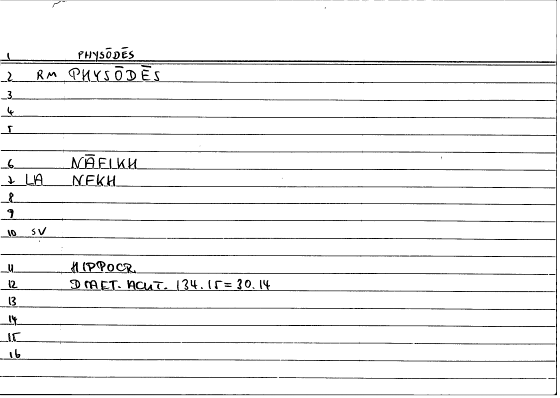 1 PHYSŌDĒS
2 RM PHYSŌDĒS
3
4
5
6 NĀFIKH
7 LA NFKH
8
9
10 SV
11 HIPPOCR.
12 DIAET. ACUT. 134.15=30.14
13
14
15
16